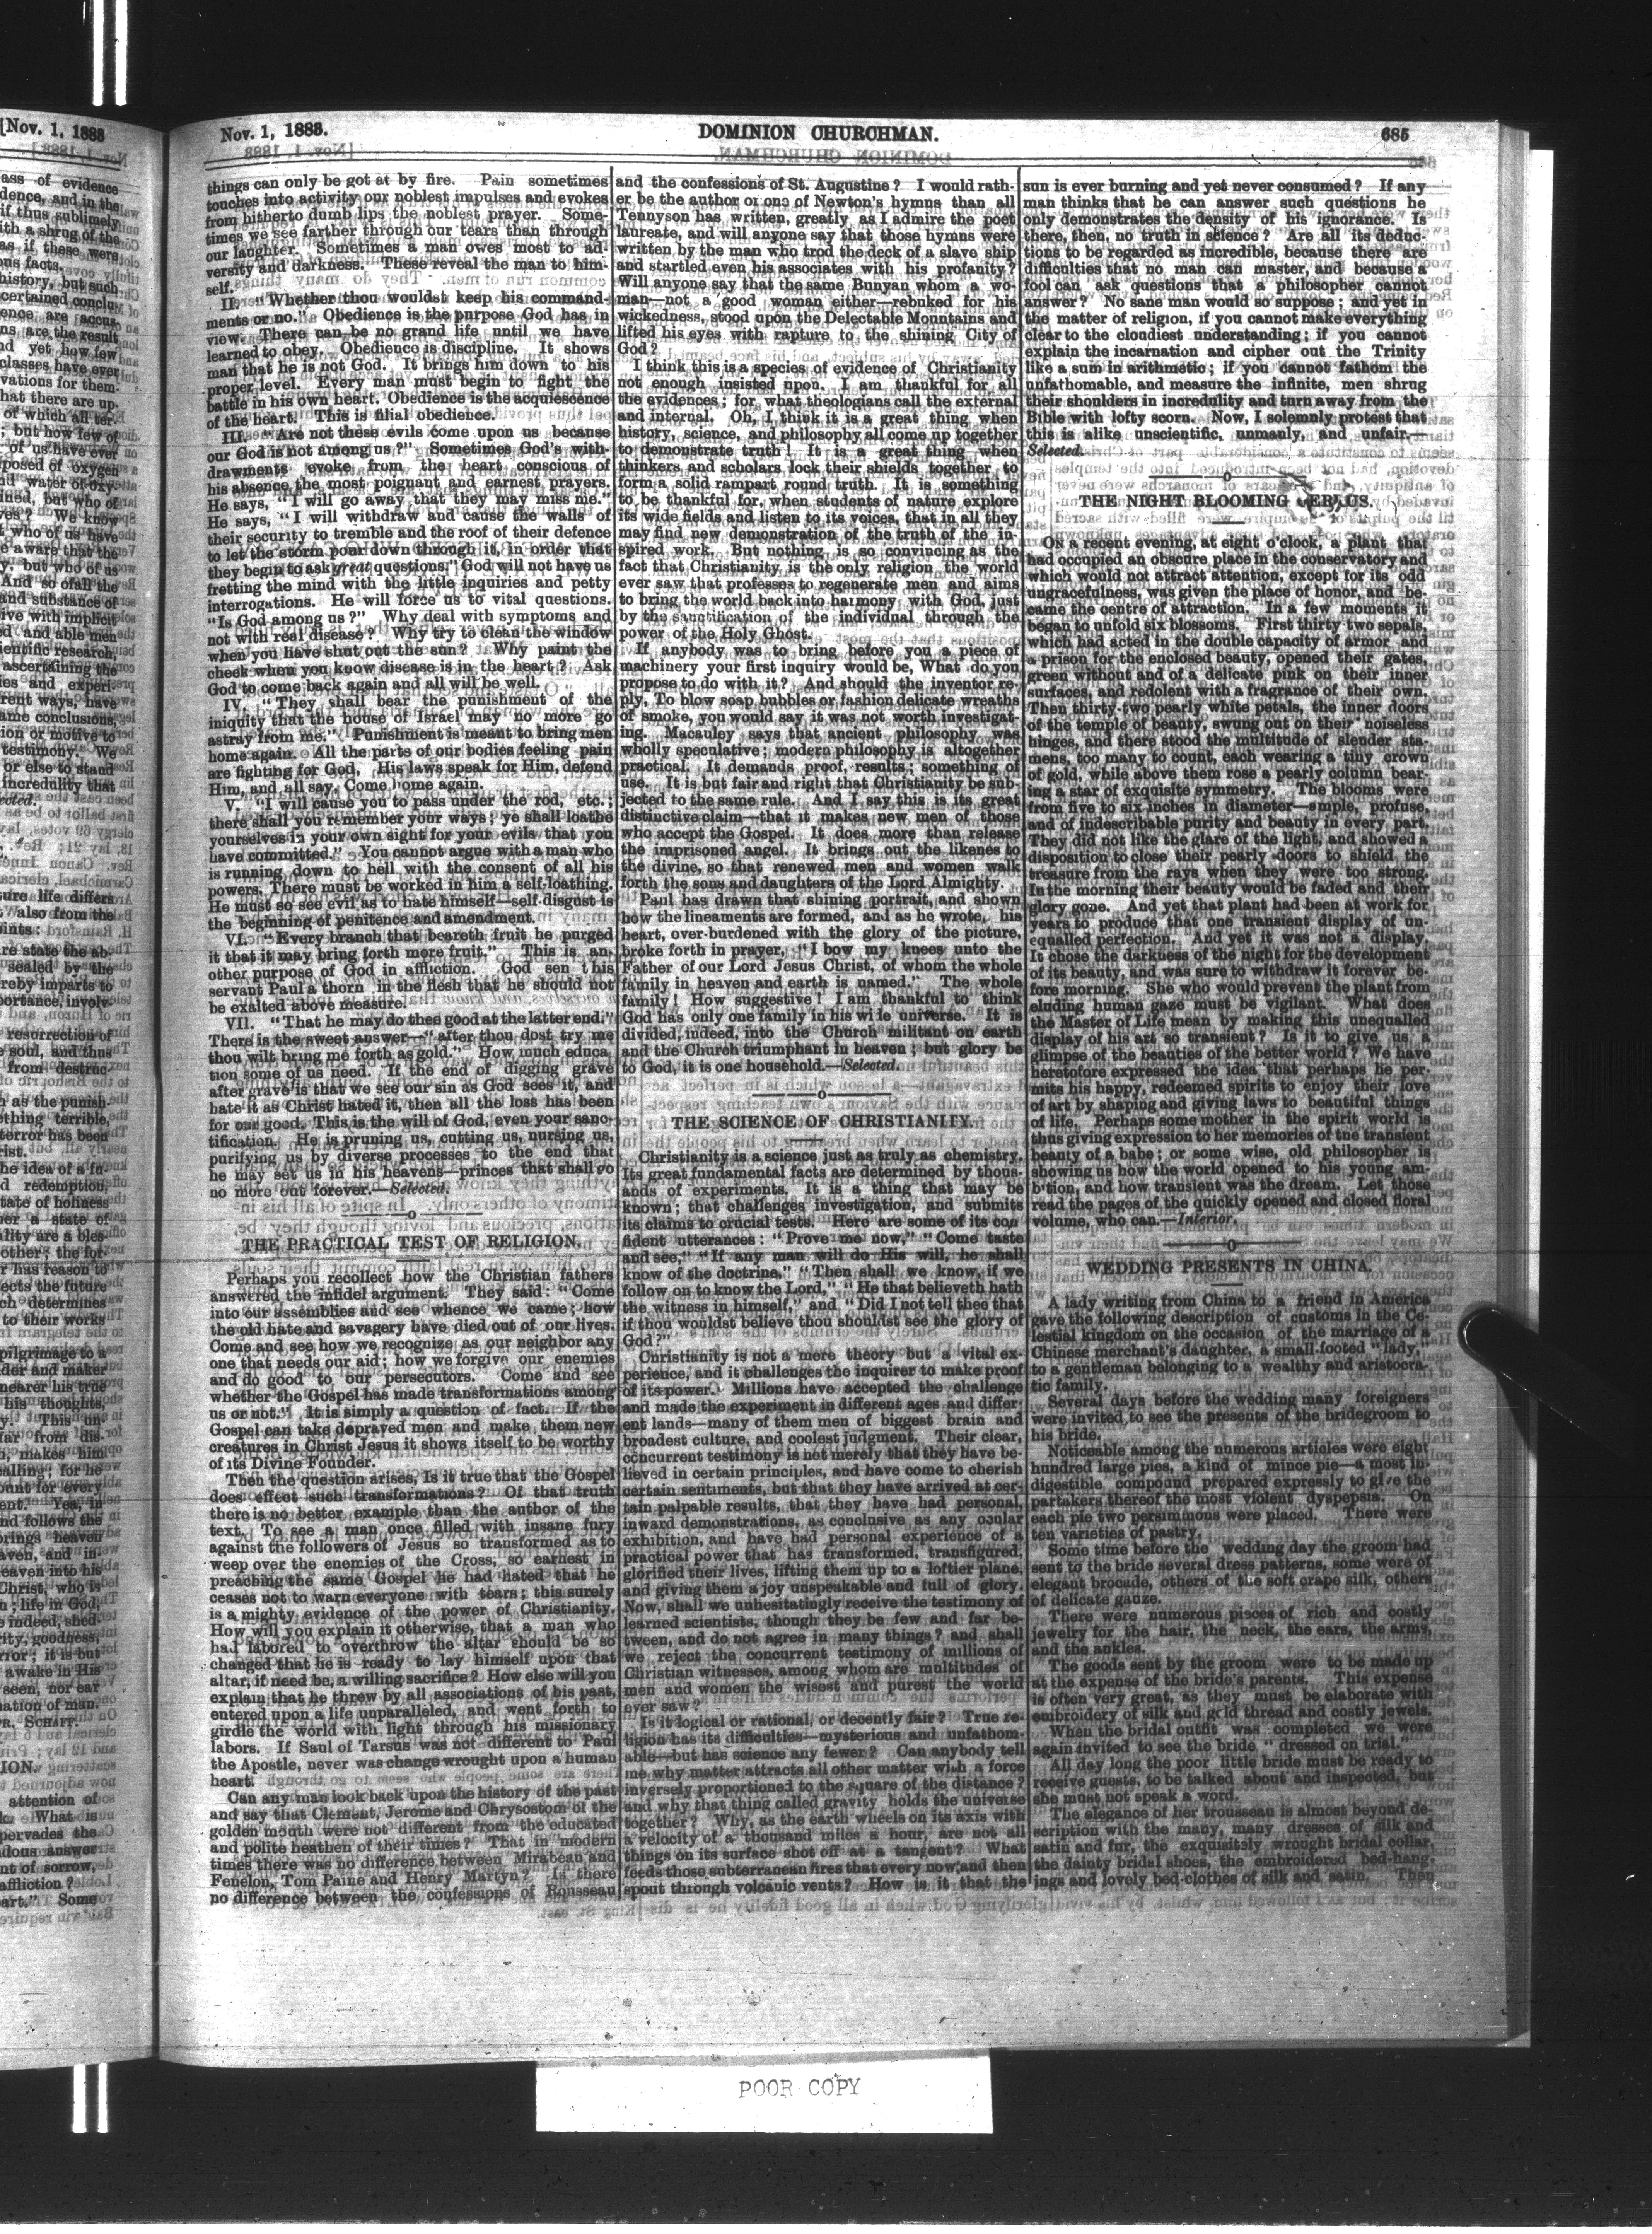 Nov. 1, 1883.
DOMINION CHURCHMAN.
685
things can only be got at by fire. Pain sometimes
touches into activity our noblest impulses and evokes
from hitherto dumb lips the noblest prayer. Some-
times we see farther through our tears than through
our laughter. Sometimes a man owes most to ad-
versity and darkness. These reveal the man to him-
self.
II. "Whether thou wouldst keep his command-
ments or no." Obedience is the purpose God has in
view. There can be no grand life until we have
learned to obey. Obedience is discipline. It shows
man that he is not God. It brings him down to his
proper level. Every man must begin to fight the
battle in his own heart. Obedience is the acquiescence
of the heart. This is filial obedience.
III. "Are not these evils come upon us because
our God is not among us?" Sometimes God's with-
drawments evoke from the heart conscious of
his absence the most poignant and earnest prayers.
He says, "I will go away that they may miss me."
He says, "I will withdraw and cause the walls of
their security to tremble and the roof of their defence
to let the storm pour down through it, in order that
they begin to ask great questions." God will not have us
fretting the mind with the little inquiries and petty
interrogations. He will force us to vital questions.
"Is God among us?" Why deal with symptoms and
not with real disease? Why try to clean the window
when you have shut out the sun? Why paint the
cheek when you know disease is in the heart? Ask
God to come back again and all will be well.
IV. "They shall bear the punishment of the
iniquity that the house of Israel may no more go
astray from me." Punishment is meant to bring men
home again. All the parts of our bodies feeling pain
are fighting for God. His laws speak for Him, defend
Him, and all say, Come home again.
V. "I will cause you to pass under the rod, etc.;
there shall you remember your ways; ye shall loathe
yourselves in your own sight for your evils that you
have committed." You cannot argue with a man who
is running down to hell with the consent of all his
powers. There must be worked in him a self-loathing.
He must so see evil as to hate himself—self-disgust is
the beginning of penitence and amendment.
VI. "Every branch that beareth fruit he purged
it that it may bring forth more fruit." This is an-
other purpose of God in affliction. God sen this
servant Paul a thorn in the flesh that he should not
be exalted above measure.
VII. "That he may do thee good at the latter end."
There is the sweet answer—"after thou dost try me
thou wilt bring me forth as gold." How much educa
tion some of us need. If the end of digging grave
after grave is that we see our sin as God sees it, and
hate it as Christ hated it, then all the loss has been
for our good. This is the will of God, even your sanc-
tification. He is pruning us, cutting us, nursing us,
purifying us by diverse processes to the end that
he may set us in his heavens—princes that shall go
no more out forever.—Selected.
THE PRACTICAL TEST OF RELIGION.
Perhaps you recollect how the Christian fathers
answered the infidel argument. They said: "Come
into our assemblies and see whence we came; how
the old hate and savagery have died out of our lives.
Come and see how we recognize as our neighbor any
one that needs our aid; how we forgive our enemies
and do good to our persecutors." Come and see
whether the Gospel has made transformations among
us or not." It is simply a question of fact. If the
Gospel can take depraved men and make them new
creatures in Christ Jesus it shows itself to be worthy
of its Divine Founder.
Then the question arises, Is it true that the Gospel
does effect such transformations? Of that truth
there is no better example than the author of the
text. To see a man once filled with insane fury
against the followers of Jesus so transformed as to
weep over the enemies of the Cross, so earnest in
preaching the same Gospel he had hated that he
ceases not to warn everyone with tears; this surely
is a mighty evidence of the power of Christianity.
How will you explain it otherwise, that a man who
had labored to overthrow the altar should be so
changed that he is ready to lay himself upon that
altar, if need be, a willing sacrifice? How else will you
explain that he threw by all associations of his past,
entered upon a life unparalleled, and went forth to
girdle the world with light through his missionary
labors. If Saul of Tarsus was not different to Paul
the Apostle, never was change wrought upon a human
heart.
Can any man look back upon the history of the past
and say that Clement, Jerome and Chrysostom of the
golden mouth were not different from the educated
and polite heathen of their times? That in modern
times there was no difference between Mirabeau and
Fenelon, Tom Paine and Henry Martyn? Is there
no difference between the confessions of Rousseau
and the confessions of St. Augustine? I would rath-
er be the author of one of Newton's hymns than all
Tennyson has written, greatly as I admire the poet
laureate, and will anyone say that those hymns were
written by the man who trod the deck of a slave ship
and startled even his associates with his profanity?
Will anyone say that the same Bunyan whom a wo-
man—not a good woman either—rebuked for his
wickedness, stood upon the Delectable Mountains and
lifted his eyes with rapture to the shining City of
God?
I think this is a species of evidence of Christianity
not enough insisted upon. I am thankful for all
the evidences; for, what theologians call the external
and internal. Oh, I think it is a great thing when
history, science, and philosophy all come up together
to demonstrate truth! It is a great thing when
thinkers and scholars lock their shields together to
form a solid rampart round truth. It is something
to be thankful for, when students of nature explore
its wide fields and listen to its voices, that in all they
may find new demonstration of the truth of the in-
spired work. But nothing is so convincing as the
fact that Christianity is the only religion the world
ever saw that professes to regenerate men and aims
to bring the world back into harmony with God, just
by the sanctification of the individual through the
power of the Holy Ghost.
If anybody was to bring before you a piece of
machinery your first inquiry would be, What do you
propose to do with it? And should the inventor re-
ply, To blow soap bubbles or fashion delicate wreaths
of smoke, you would say it was not worth investigat-
ing. Macauley says that ancient philosophy was
wholly speculative; modern philosophy is altogether
practical. It demands proof, results; something of
use. It is but fair and right that Christianity be sub-
jected to the same rule. And I say this is its great
distinctive claim—that it makes new men of those
who accept the Gospel. It does more than release
the imprisoned angel. It brings out the likenes to
the divine, so that renewed men and women walk
forth the sons and daughters of the Lord Almighty.
Paul has drawn that shining portrait, and shown
how the lineaments are formed, and as he wrote, his
heart, over-burdened with the glory of the picture,
broke forth in prayer, "I bow my knees unto the
Father of our Lord Jesus Christ, of whom the whole
family in heaven and earth is named." The whole
family! How suggestive! I am thankful to think
God has only one family in his wide universe. It is
divided, indeed, into the Church militant on earth
and the Church triumphant in heaven; but glory be
to God, it is one household.—Selected.
THE SCIENCE OF CHRISTIANITY.
Christianity is a science just as truly as chemistry.
Its great fundamental facts are determined by thous-
ands of experiments. It is a thing that may be
known; that challenges investigation, and submits
its claims to crucial tests. Here are some of its con
fident utterances: "Prove me now," "Come taste
and see," "If any man will do His will, he shall
know of the doctrine," "Then shall we know, if we
follow on to know the Lord," "He that believeth hath
the witness in himself," and "Did I not tell thee that
if thou wouldst believe thou shouldst see the glory of
God?"
Christianity is not a mere theory but a vital ex-
perience, and it challenges the inquirer to make proof
of its power. Millions have accepted the challenge
and made the experiment in different ages and differ-
ent lands—many of them men of biggest brain and
broadest culture, and coolest judgment. Their clear,
concurrent testimony is not merely that they have be-
lieved in certain principles, and have come to cherish
certain sentiments, but that they have arrived at cer-
tain palpable results, that they have had personal,
inward demonstrations, as conclusive as any ocular
exhibition, and have had personal experience of a
practical power that has transformed, transfigured,
glorified their lives, lifting them up to a loftier plane,
and giving them a joy unspeakable and full of glory.
Now, shall we unhesitatingly receive the testimony of
learned scientists, though they be few and far be-
tween, and do not agree in many things? and shall
we reject the concurrent testimony of millions of
Christian witnesses, among whom are multitudes of
men and women the wisest and purest the world
ever saw?
Is it logical or rational, or decently fair? True re-
ligion has its difficulties—mysterious and unfathom-
able—but has science any fewer? Can anybody tell
me why matter attracts all other matter with a force
inversely proportioned to the square of the distance?
and why that thing called gravity holds the universe
together? Why, as the earth wheels on its axis with
a velocity of a thousand miles a hour, are not all
things on its surface shot off at a tangent? What
feeds those subterranean fires that every now and then
spout through volcanic vents? How is it that the
sun is ever burning and yet never consumed? If any
man thinks that he can answer such questions he
only demonstrates the density of his ignorance. Is
there, then, no truth in science? Are all its deduc-
tions to be regarded as incredible, because there are
difficulties that no man can master, and because a
fool can ask questions that a philosopher cannot
answer? No sane man would so suppose; and yet in
the matter of religion, if you cannot make everything
clear to the cloudiest understanding; if you cannot
explain the incarnation and cipher out the Trinity
like a sum in arithmetic; if you cannot fathom the
unfathomable, and measure the infinite, men shrug
their shoulders in incredulity and turn away from the
Bible with lofty scorn. Now, I solemnly protest that
this is alike unscientific, unmanly, and unfair.—
Selected.
THE NIGHT BLOOMING
On a recent evening, at eight o'clock, a plant that
had occupied an obscure place in the conservatory and
which would not attract attention, except for its odd
ungracefulness, was given the place of honor, and be-
came the centre of attraction. In a few moments it
began to unfold six blossoms. First thirty-two sepals,
which had acted in the double capacity of armor and
a prison for the enclosed beauty, opened their gates,
green without and of a delicate pink on their inner
surfaces, and redolent with a fragrance of their own.
Then thirty-two pearly white petals, the inner doors
of the temple of beauty, swung out on their noiseless
hinges, and there stood the multitude of slender sta-
mens, too many to count, each wearing a tiny crown
of gold, while above them rose a pearly column bear-
ing a star of exquisite symmetry. The blooms were
from five to six inches in diameter—ample, profuse,
and of indescribable purity and beauty in every part.
They did not like the glare of the light, and showed a
disposition to close their pearly doors to shield the
treasure from the rays when they were too strong.
In the morning their beauty would be faded and their
glory gone. And yet that plant had been at work for
years to produce that one transient display of un-
equalled perfection. And yet it was not a display.
It chose the darkness of the night for the development
of its beauty, and was sure to withdraw it forever be-
fore morning. She who would prevent the plant from
eluding human gaze must be vigilant. What does
the Master of Life mean by making this unequalled
display of his art so transient? Is it to give us a
glimpse of the beauties of the better world? We have
heretofore expressed the idea that perhaps he per-
mits his happy, redeemed spirits to enjoy their love
of art by shaping and giving laws to beautiful things
of life. Perhaps some mother in the spirit world is
thus giving expression to her memories of the transient
beauty of a babe; or some wise, old philosopher is
showing us how the world opened to his young am-
bition, and how transient was the dream. Let those
read the pages of the quickly opened and closed floral
volume, who can.—Interior.
WEDDING PRESENTS IN CHINA.
A lady writing from China to a friend in America
gave the following description of customs in the Ce-
lestial kingdom on the occasion of the marriage of a
Chinese merchant's daughter, a small-footed "lady,"
to a gentleman belonging to a wealthy and aristocra-
tic family.
Several days before the wedding many foreigners
were invited to see the presents of the bridegroom to
his bride.
Noticeable among the numerous articles were eight
hundred large pies, a kind of mince pie—a most in-
digestible compound prepared expressly to give the
partakers thereof the most violent dyspepsia. On
each pie two persimmons were placed. There were
ten varieties of pastry.
Some time before the wedding day the groom had
sent to the bride several dress patterns, some were of
elegant brocade, others of the soft crape silk, others
of delicate gauze.
There were numerous pieces of rich and costly
jewelry for the hair, the neck, the ears, the arms,
and the ankles.
The goods sent by the groom were to be made up
at the expense of the bride's parents. This expense
is often very great, as they must be elaborate with
embroidery of silk and gold thread and costly jewels.
When the bridal outfit was completed we were
again invited to see the bride "dressed on trial."
All day long the poor little bride must be ready to
receive guests, to be talked about and inspected, but
she must not speak a word.
The elegance of her trousseau is almost beyond de-
scription with the many, many dresses of silk and
satin and fur, the exquisitely wrought bridal collar,
the dainty bridal shoes, the embroidered bed-hang-
ings and lovely bed-clothes of silk and satin. Then
POOR COPY